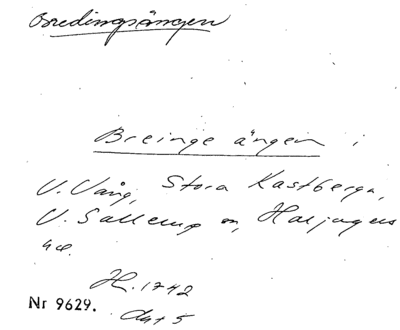 Bredingsängen
Breinge ängen i
V. Vång, Stora Kastberga,
V. Sallerup sn, Harjagers
hd.
H. 1742
akt 5
Nr 9629.